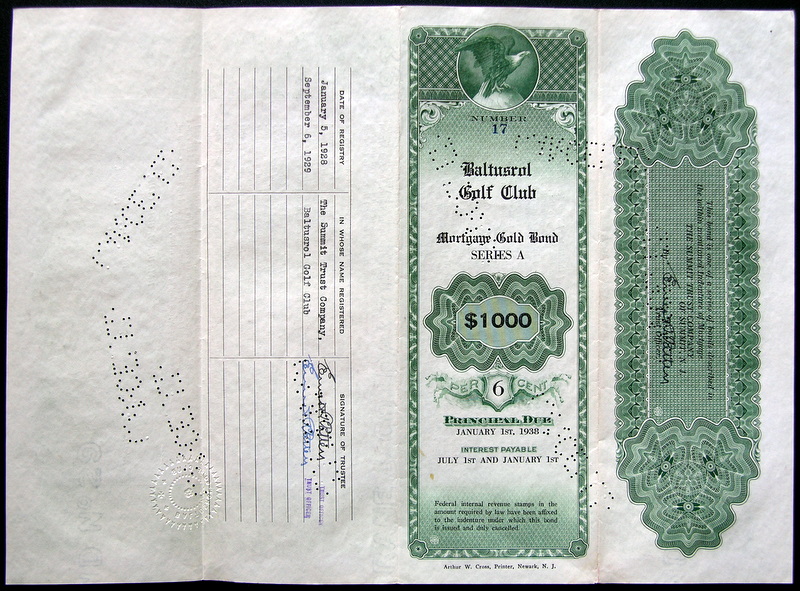 DATE OF REGISTRY
IN WHOSE NAME REGISTERED
SIGNATURE OF TRUSTEE
January 5, 1928
The Summit Trust Company,
September 6, 1929
Baltusrol Golf Club
NUMBER
17
Baltusrol
Golf Club
Mortgage Gold Bond
SERIES A
$1000
PER 6 CENT
PRINCIPAL DUE
JANUARY 1ST, 1938
INTEREST PAYABLE
JULY 1ST AND JANUARY 1ST
Federal internal revenue stamps in the
amount required by law have been affixed
to the indenture under which this bond
is issued and duly cancelled.
Arthur W. Cross, Printer, Newark, N. J.
This bond is one of a series of bonds described in
the within mentioned Indenture of Mortgage.
THE SUMMIT TRUST COMPANY